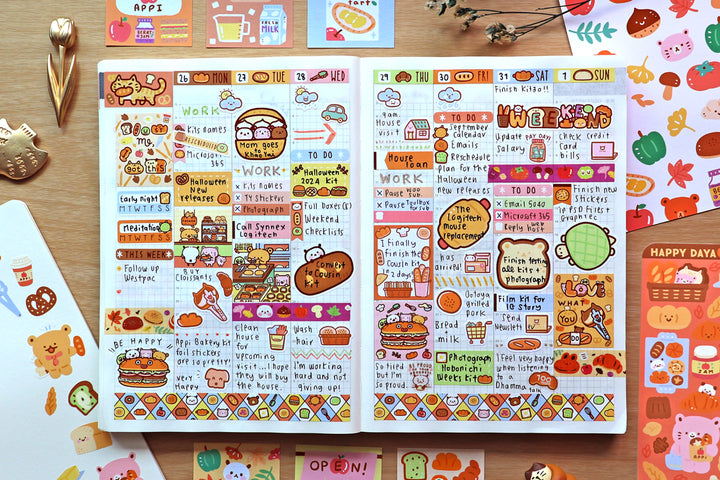 APPI
MILK
tart
26 MON
27 TUE
28 WED
29 THU
30 FRI
31 SAT
1 SUN
you & me
got this
Early Night
M T W T F S S
Meditation
M T W T F S S
THIS WEEK
Follow up
Westpac
BE HAPPY
WORK
x Kits Names
RESCHEDULED
x Microsoft
365
Halloween
New
releases
Buy
Croissants
Appi Bakery kit
foil stickers
are so pretty!
very
Happy
Mom goes
to
Khao Yai
WORK
x Kits Names
x TY Stickers
x Photograph
Call Synnex
Logitech
Clean
house
for
upcoming
visit... I hope
they will buy
the house.
TO DO
Halloween
2024 kit
Full Boxes(?)
Weekend
checklists
Convert
to Cousin
kit
Wash
hair
I'm working
hard and not
giving up!
9am
House
visit
House
loan
WORK
x Pause Woo
sub
x Pause Toolbox
for sub
I Finally
Finish the
Cousin kit
in 2 days
So tired
but I'm
so proud
TO DO
September
Calendar
Emails
Reschedule
plan for the
Halloween
new releases
The
Logitech
mouse
replacement
has
arrived!
Ootoya
grilled
pork
Bread
milk
Photograph
Hobonichi
Weeks kit
Finish kitao!!
WEEKEND
Update
salary
PAY DAY
TO DO
x Email 5040
x Microsoft 365
Reply host
Finish tetting
all kit +
photograph
Film kit for
IG Story
Send
Newsletter
I feel very
happy when
listening to
a
Dhamma talk
Check credit
card
bills
Finish new
stickers
Tp PSD Files +
Graphtec
I LOVE
WHAT
YOU
DO
OPEN!
HAPPY DAYA
JAM
APPI